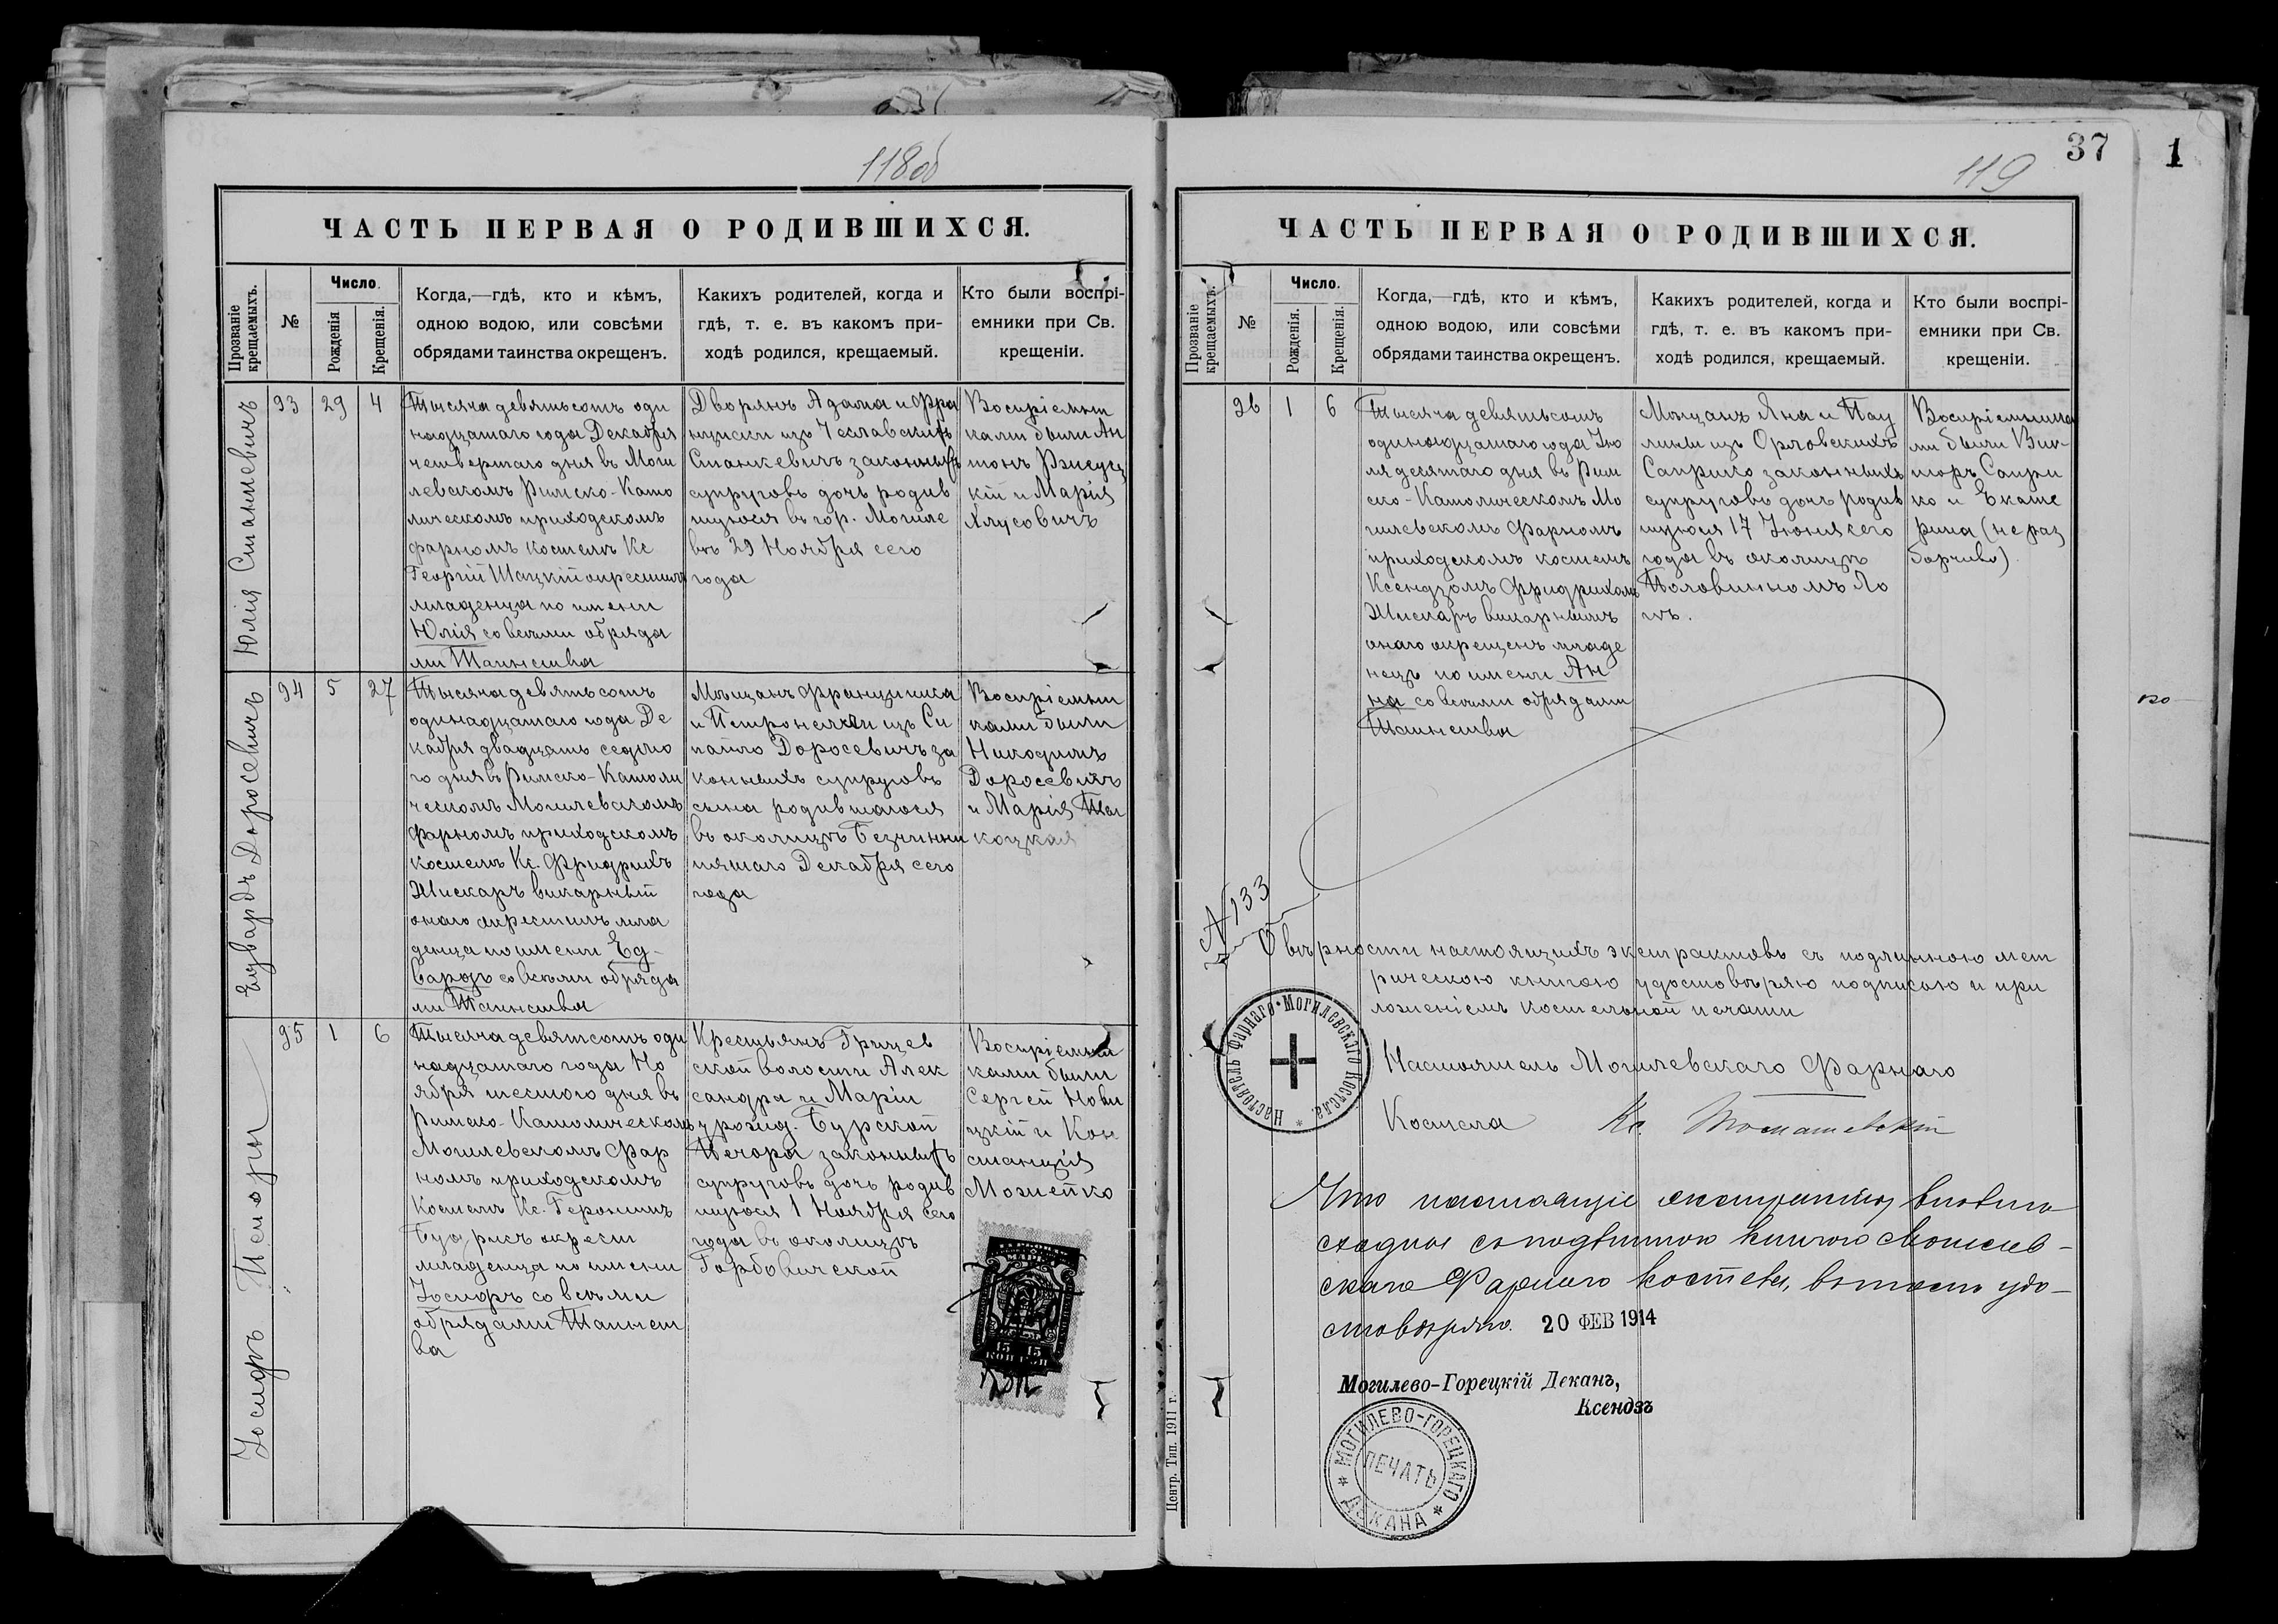 118об
ЧАСТЬ ПЕРВАЯ О РОДИВШИХСЯ.
Прозваніе
крещаемыхъ.
№
Число.
Рожденія
Крещенія.
Когда,—гдѣ, кто и кѣмъ,
одною водою, или совсѣми
обрядами таинства окрещенъ.
Какихъ родителей, когда и
гдѣ, т. е. въ какомъ при-
ходѣ родился, крещаемый.
Кто были воспрі-
емники при Св.
крещеніи.
Юлія Станкевичъ
93
29
4
Тысяча девятьсотъ оди
надцатаго года Декабря
четвертаго дня въ Моги
левскомъ Римско-Като
лическомъ приходскомъ
фарномъ костелѣ Кс
Георгій Шацкій окрестилъ
младенца по имени
Юлія со всѣми обряда
ми Таинства
Дворянъ Адама и Фра
нциски изъ Чеславскихъ
Станкевичъ законныхъ
супруговъ дочь родив
шуюся въ гор. Могиле
вѣ 29 Ноября сего
года
Воспріемни
ками были Ан
тонъ
кій и Марія
Хлусовичъ
Едвардъ Доросевичъ
94
5
27
Тысяча девятьсотъ
одинадцатаго года Де
кабря двадцать седьмо
го дня въ Римско-Католи
ческомъ Могилевскомъ
фарномъ приходскомъ
костелѣ Кс. Фридрихъ
Жискаръ викарный
онаго окрестилъ мла
денца по имени Ед-
вардъ со всѣми обряда
ми Таинства
Мѣщанъ Франциска
и Петронелли изъ Си
пайло Доросевичъ за
конныхъ супруговъ
сына родившагося
въ околицѣ Безчинни
пятаго Декабря сего
года
Воспріемни
ками были
Никодимъ
Доросевичъ
и Марія
коцкая
Іосифъ
95
1
6
Тысяча девятсотъ оди
надцатаго года Но
ября шестого дня въ
Римско-Католическомъ
Могилевскомъ Фар
номъ приходскомъ
Костелѣ Кс. Геронимъ
окрести
младенца по имени
Іосифъ со всѣми
обрядами Таинст
ва
Крестьянъ
ской волости Алек
сандра и Маріи
урожд. Бурской
законныхъ
супруговъ дочь родив
шуюся 1 Ноября сего
года въ околицѣ
Горбовичской
Воспріемни
ками были
Сергей Нови
цкій и Кон
станція
Можейко
МАРКА
15 15
КОПѢЕК
37
1
119
ЧАСТЬ ПЕРВАЯ О РОДИВШИХСЯ.
Прозваніе
крещаемыхъ.
№
Число.
Рожденія.
Крещенія.
Когда,—гдѣ, кто и кѣмъ,
одною водою, или совсѣми
обрядами таинства окрещенъ.
Какихъ родителей, когда и
гдѣ, т. е. въ какомъ при-
ходѣ родился, крещаемый.
Кто были воспрі-
емники при Св.
крещеніи.
96
1
6
Тысяча девятьсотъ
одинадцатаго года Ію
ля десятаго дня въ Рим
ско-Католическомъ Мо
гилевскомъ Фарномъ
приходскомъ костелѣ
Ксендзомъ Фридрихомъ
Жискаръ викарнымъ
онаго окрещенъ младе
нецъ по имени Ан
на со всѣми обрядами
Таинства
Мѣщанъ Яна и Пау
лины изъ Орловскихъ
Саприко законныхъ
супруговъ дочь родив
шуюся 17 Іюня сего
года въ околицѣ
Половинномъ Ло
гѣ.
Воспріемника
ми были Вик
торъ Сапри
ко и Екате
рина (не раз
борчиво)
№133
О вѣрности настоящихъ экстрактовъ съ подлинною мет
рическою книгою удостовѣряю подписью и при
ложеніемъ костельной печати
Настоятель Фарнаго-Могилевскаго Костела.
Настоятель Могилевскаго Фарнаго
Костела Кс.
Что настоящіе экстракты вполнѣ
сходны съ подлинною книгою Могилев-
скаго Фарнаго костела, въ томъ удо-
стовѣряю. 20 ФЕВ 1914
Могилево-Горецкій Деканъ,
Ксендзъ
МОГИЛЕВО-ГОРЕЦКАГО ДЕКАНА
ПЕЧАТЬ
Центр. Тип. 1911 г.